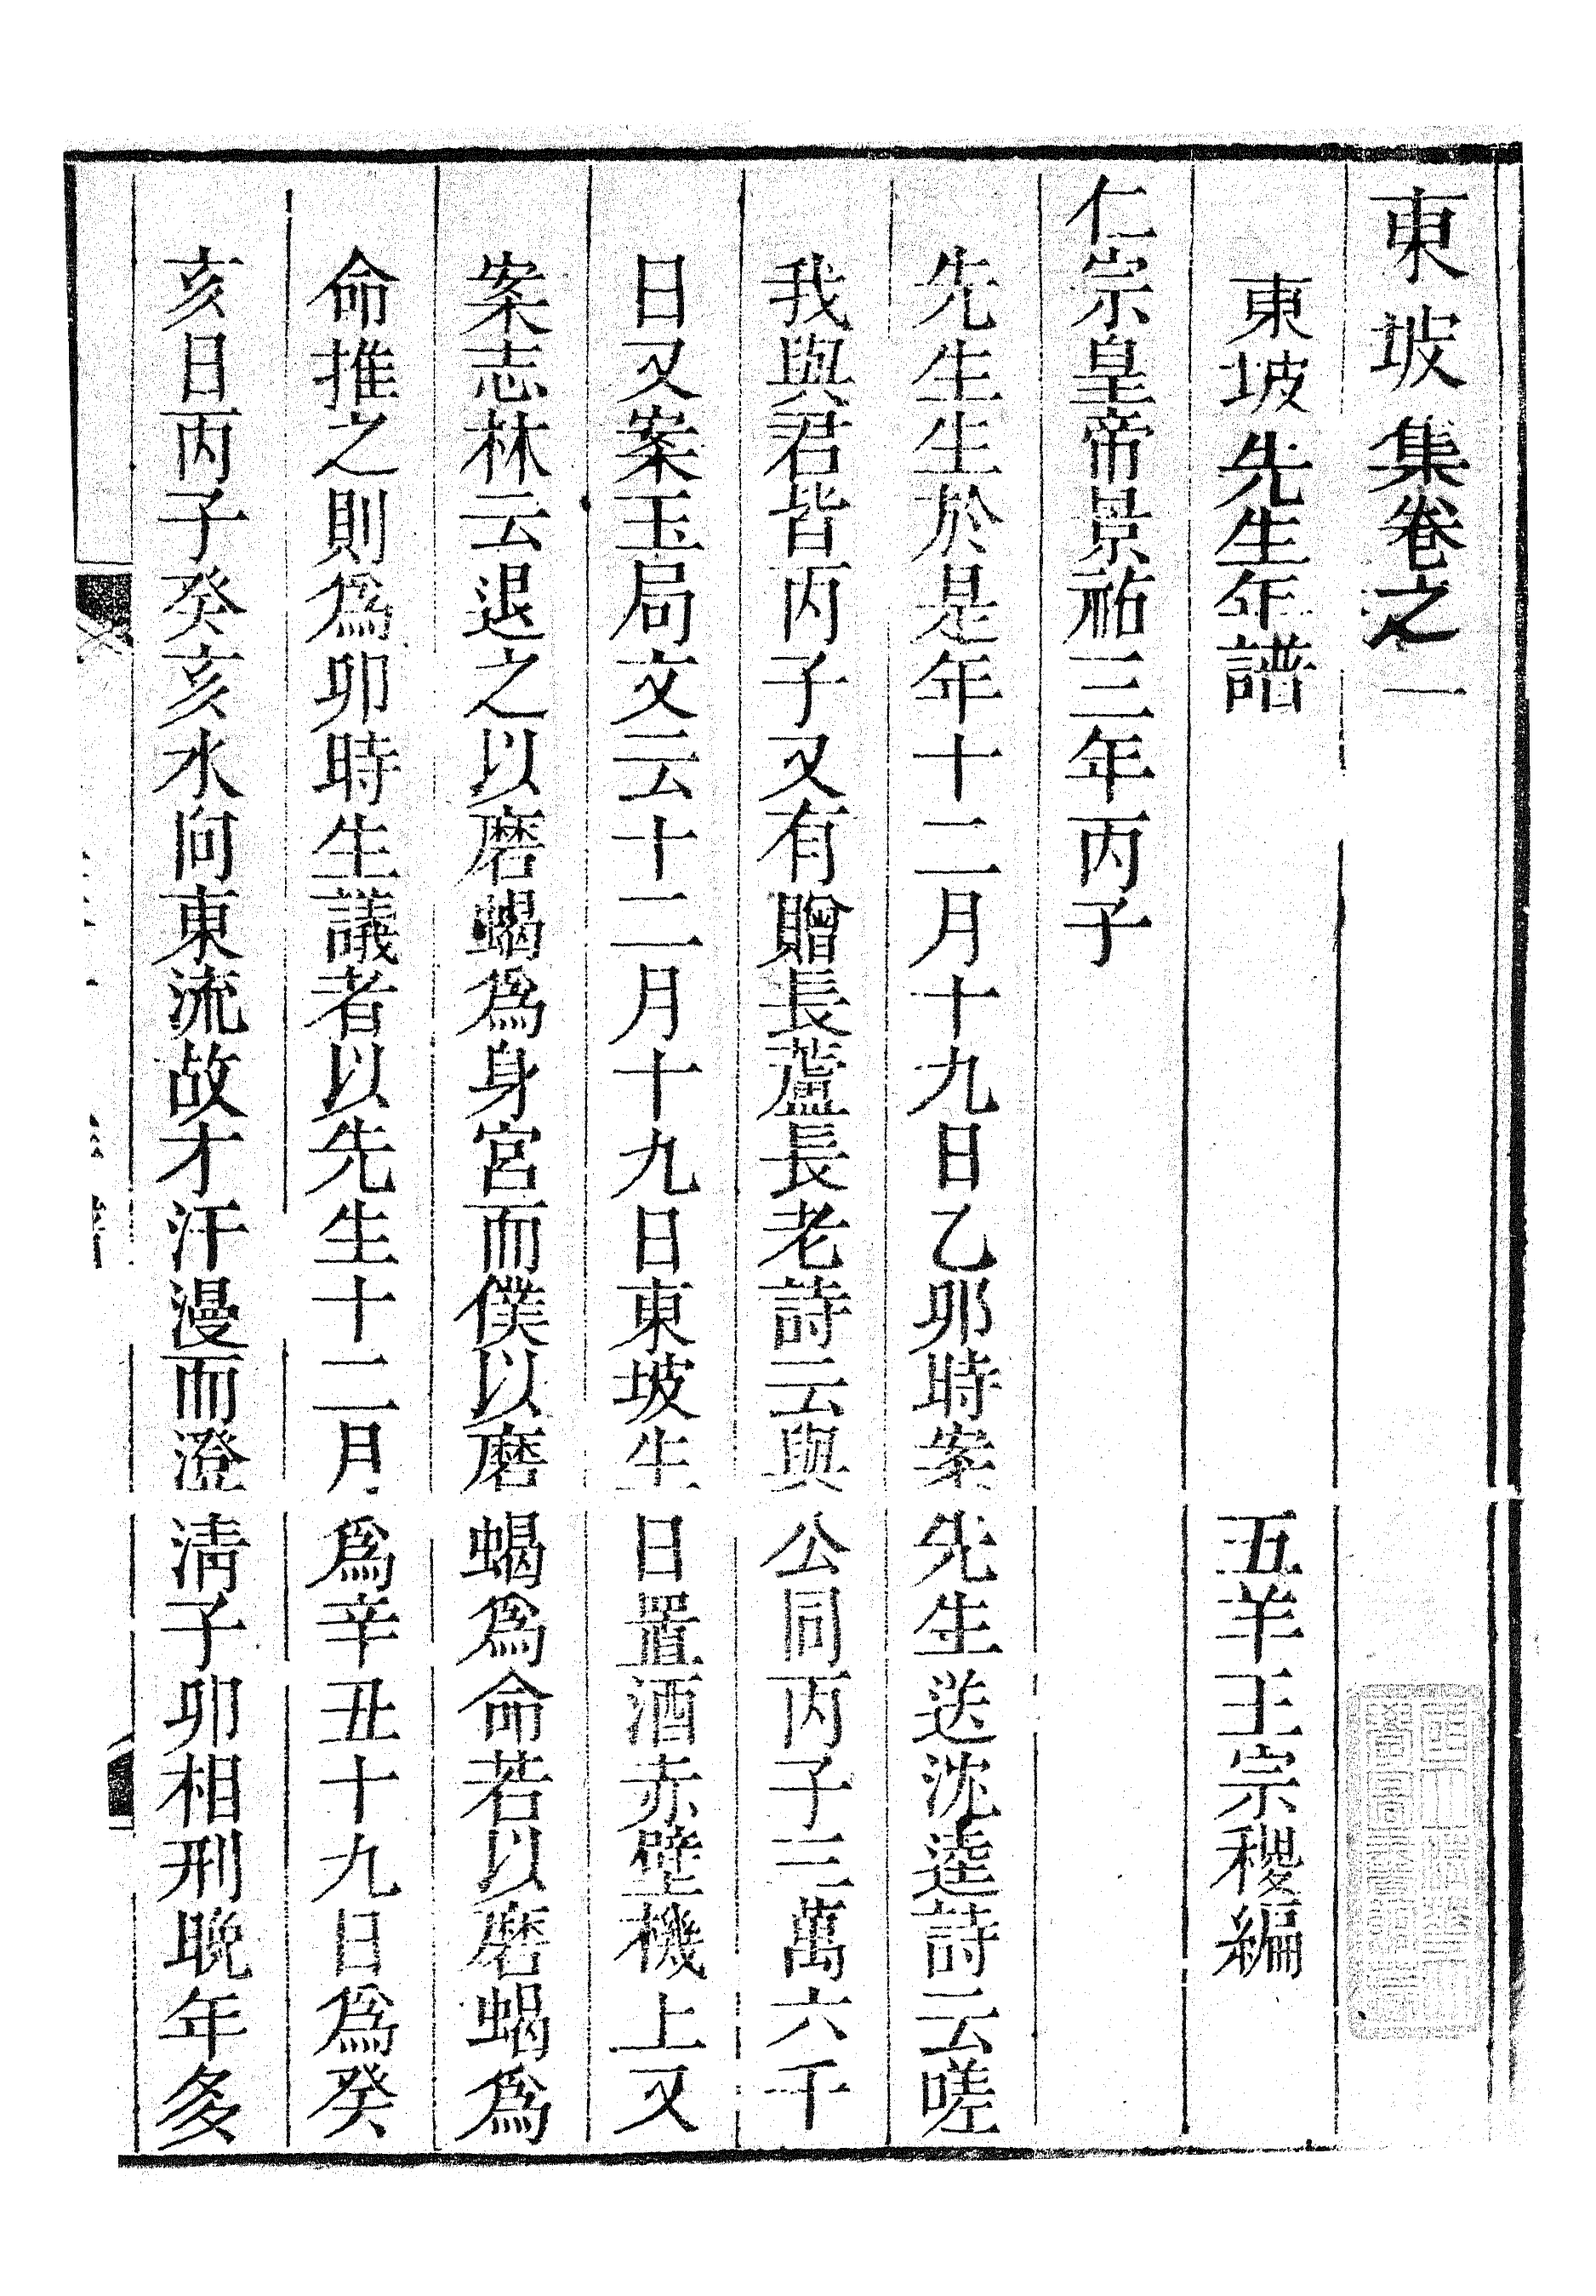 東坡集卷之一
東坡先生年譜
五羊王宗稷編
仁宗皇帝景祐三年丙子
先生生於是年十二月十九日乙卯時案先生送沈逵詩云嗟
我與君皆丙子又有贈長蘆長老詩云與公同丙子三萬六千
日又案玉局文云十二月十九日東坡生日置酒赤壁機上又
案志林云退之以磨蝎爲身宮而僕以磨蝎爲命若以磨蝎爲
命推之則爲卯時生議者以先生十二月爲辛丑十九日爲癸
亥日丙子癸亥水向東流故才汗漫而澄清子卯相刑晚年多